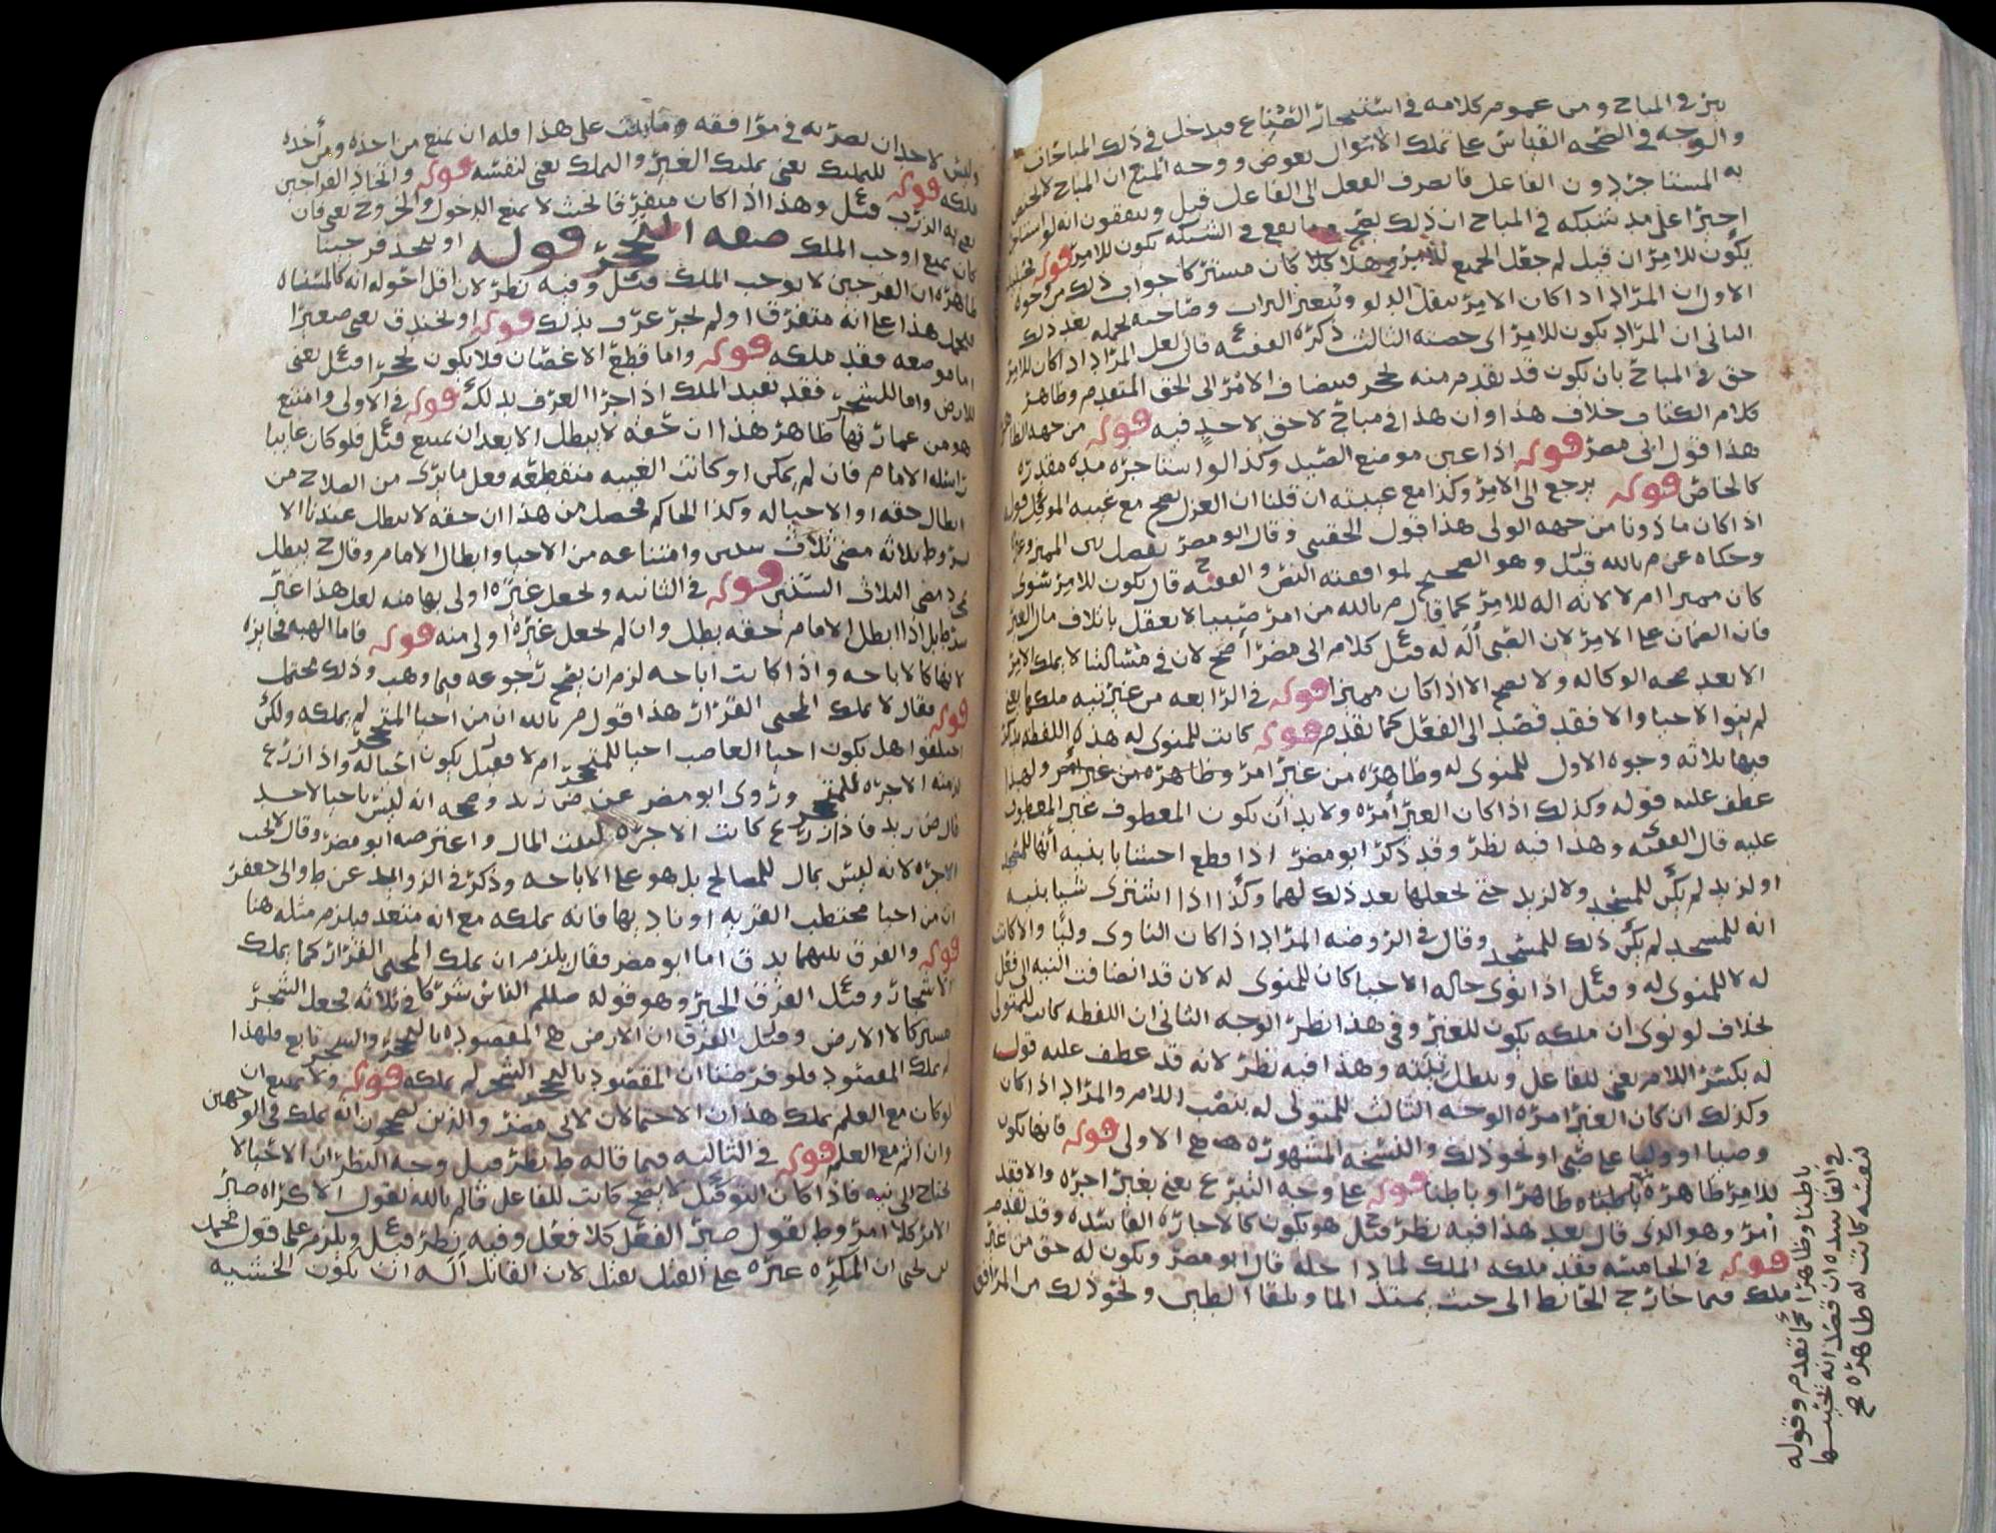 في المباح ومن عموم كلامه في استئجار الصناع فيدخل في ذلك المباحات
والوجه في الصحه القياس على تملك الاموال بعوض ووجه المنع ان المباح لا يختص
به المستاجر دون الفاعل فانصرف الفعل الى الفاعل قيل ويتفقون انه لو استاجر
اجيرا على مد شبكه في المباح ان ذلك يصح وما يقع في الشبكه يكون للامر قوله
يكون للامر ان قيل لم جعل الجميع للامر وهلا كان مشتركا جواب ذلك من وجوه
الاول ان المراد اذا كان الامر ينقل الدلو ويبعثر التراب وصاحبه يحمله بعد ذلك
الثاني ان المراد يكون للامر اي حصته الثالث ذكره الفقيه قال لعل المراد اذا كان للامر
حق في المباح بان يكون قد تقدم منه تحجر فيضاف الامر الى الحق المتقدم وظاهر
كلام الكتاب خلاف هذا وان هذا في مباح لا حق لاحد فيه قوله من جهه الظاهر
هذا قول ابي مضر قوله اذا عين موضع الصيد وكذا لو استاجره مده مقدره
كالخاص قوله يرجع الى الامر وكذا مع غيبته ان قلنا ان العزل يصح مع غيبه الموكل قوله
اذا كان ماذونا من جهه الولي هذا قول الحقيني وقال ابو مضر يفصل بين المميز وغيره
وحكاه عن م بالله قيل وهو الصحيح لموافقته النص والفقيه قال يكون للامر سوى
كان مميزا ام لا لانه اله للامر كما قال م بالله من امر صبيا لا يعقل باتلاف مال الغير
فان الضمان على الامر لان الصبي اله له كلام ابي مضر اصح لان في مسالتنا لا يملك الامر
الا بعد صحه الوكاله ولا تصح الا اذا كان مميزا قوله في الرابعه من غير نيه ملكها يعني
لم ينو الاحيا والا فقد قصد الى الفعل كما تقدم قوله كانت للمنوي له هذه اللفظه يذكر
فيها ثلاثه وجوه الاول للمنوي له وظاهره من غير امر وظاهره من غير امر ولهذا
عطف عليه قوله وكذلك اذا كان الغير امره ولا بد ان يكون المعطوف غير المعطوف
عليه قال الفقيه وهذا فيه نظر وقد ذكر ابو مضر اذا قطع اخشابا بنيه انها للمسجد
او لزيد لم يكن للمسجد ولا لزيد حتى يجعلها بعد ذلك لهما وكذا اذا اشترى شيا بنيه
انه للمسجد لم يكن ذلك للمسجد وقال في الروضه المراد اذا كان الناوي وليا والا كانت
له لا للمنوي له اذا نوى حاله الاحيا كان للمنوي له لان قد انضافت النيه الى فعل
بخلاف لو نوى ان ملكه يكون للغير وفي هذا نظر الوجه الثاني ان اللفظه كانت للمتولي
له بكسر اللام يعني للفاعل وبطل نيته وهذا فيه نظر لانه قد عطف عليه قوله
وكذلك ان كان الغير امره الوجه الثالث للمتولى له بنصب اللام والمراد اذا كان
وصيا او وليا على صبي او نحو ذلك والنسخه المشهوره هي الاولى قوله فانها تكون
للامر ظاهره باطنا ظاهرا وباطنا قوله على وجه التبرع يعني بغير اجره والا فقد
امر وهو الذي قال بعد هذا فيه نظر هو يكون كالاجاره الفاسده وقد تقدم
قوله في الخامسه فقد ملكه الملك لما داخله قال ابو مضر ويكون له حق من غير
ملك فيما خارج الحائط الى حيث يمتد الما ويلقا الطين ونحو ذلك من المرافق
باطنا وظاهرا كما تقدم وقوله
في الفاسده ان قصد انه تحسبها
لنفسه كانت له ظاهره صح
وليس لاحد ان يضر به في مرافقه وما ينبت على هذا فله ان يمنع من اخذه ومن اخذه
ملكه قوله للتمليك يعني تمليك الغير والتملك يعني لنفسه قوله واتخاذ الفراجين
يعني به الزرب وهذا اذا كان متفرقا بحيث لا يمنع الدخول والخروج يعني فان
كان يمنع اوجب الملك صفه التحجر قوله او يتخذ فرجينا
ظاهره ان الفرجين لا يوجب الملك وفيه نظر لان اقل احواله انه كالمسناه
يحمل هذا على انه متفرقا او لم يجر عرف بذلك قوله او لخندق يعني صغيرا
اما موضعه فقد ملكه قوله واما قطع الاغصان فلا يكون تحجرا يعني
للارض واما للشجر فقد يفيد الملك اذا جرا العرف بذلك قوله في الاولى وامتنع
هو من عمارتها ظاهر هذا ان حقه لا يبطل الا بعد ان يمتنع فلو كان غايبا
راسله الامام فان لم يمكن او كانت الغيبه منقطعه فعل ما يرى من الصلاح من
ابطال حقه او الاحيا له وكذا الحاكم فحصل من هذا ان حقه لا يبطل عندنا الا
بشروط ثلاثه مضي ثلاث سنين وامتناعه من الاحيا وابطال الامام وقال ح يبطل
بمجرد مضي الثلاث السنين قوله في الثانيه ويجعل غيره اولى بها منه لعل هذا غير
شرط بل اذا ابطل الامام حقه بطل وان لم يجعل غيره اولى منه قوله فاما الهبه فجايزه
لانها كالاباحه واذا كانت اباحه لزم ان يصح رجوعه فيما وهب وذلك محتمل
قوله يقال لا يملك المحيي القرار هذا قول م بالله ان من احيا المتحجر لم يملكه ولكن
اختلفوا هل يكون احيا الغاصب احيا للمتحجر ام لا فقيل يكون احيا له واذا زرع
لزمته الاجره للمتحجر وروى ابو مضر عن ض زيد وصححه انه ليس باحيا لاحد
قال ض زيد فاذا زرع كانت الاجره لبيت المال واعترضه ابو مضر وقال لا تجب
الاجره لانه ليس بمال للمصالح بل هو على الاباحه وذكر في الزوايد عن ط وابي جعفر
ان من احيا محتطب القريه او ناديها فانه يملكه مع انه متعد فيلزم مثله هنا
قوله والفرق بينهما بدق اما ابو مضر فقال يلزم ان يملك المحيي القرار كما يملك
الاشجار الفرق الخبر وهو قوله صللم الناس شركا في ثلاثه فجعل الشجر
مشتركا لا الارض وقيل الفرق ان الارض هي المقصوده بالتحجر والشجر تابع فلهذا
لم يملك المقصود فلو فرضنا ان المقصود بالتحجر الشجر لم يملكه قوله ولا يمتنع ان
لو كان مع العلم يملك هذان الاحتمالان لابي مضر والذين يصححون انه يملك في الوجهين
وان اثم مع العلم قوله في الثالثه فيما قاله ط نظر قيل وجه النظر ان الاحيا لا
يحتاج الى نيه فاذا كان التوكيل لا يصح كانت للفاعل قال م بالله يقول الاكراه صير
الامر كلا امر وط يقول صير الفعل كلا فعل وفيه نظر ويلزم على قول محمد
بن يحيى ان المكره غيره على القتل يقتل لان القاتل اله ان يكون الخشبه